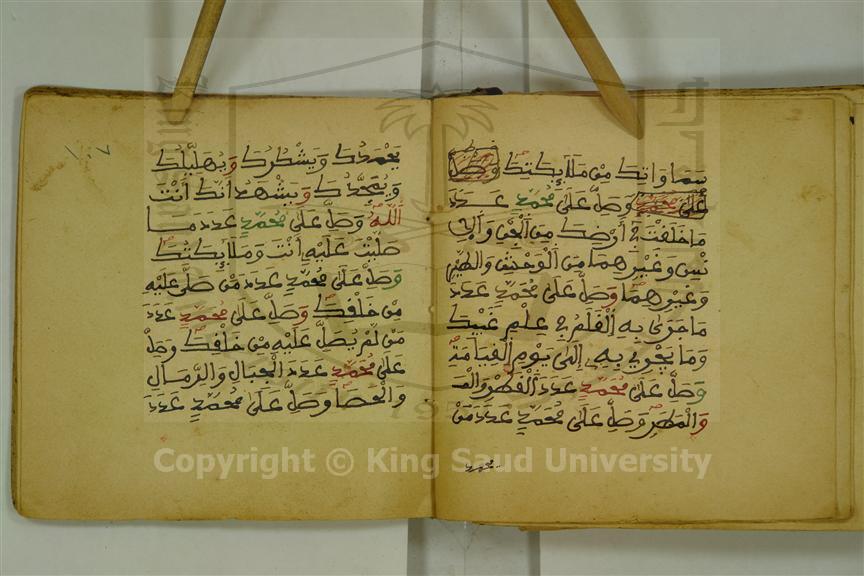 سماواتك من ملايكتك وصل
على محمد وصل على محمد عدد
ما خلقت في أرضك من الجن والإ
نس وغيرهما من الوحش والطير
وغيرهما وصل على محمد عدد
ما جرى به القلم في علم غيبك
وما يجري به إلى يوم القيامة
وصل على محمد عدد القطر والمـ
والمطر وصل على محمد عدد من
يحمدك ويشكرك ويهللك
ويمجدك ويشهد أنك أنت
الله وصل على محمد عدد ما
صليت عليه أنت وملايكتك
وصل على محمد عدد من صلى عليه
من خلقك وصل على محمد عدد
من لم يصل عليه من خلقك وصل
على محمد عدد الجبال والرمال
والحصا وصل على محمد عدد
Copyright © King Saud University